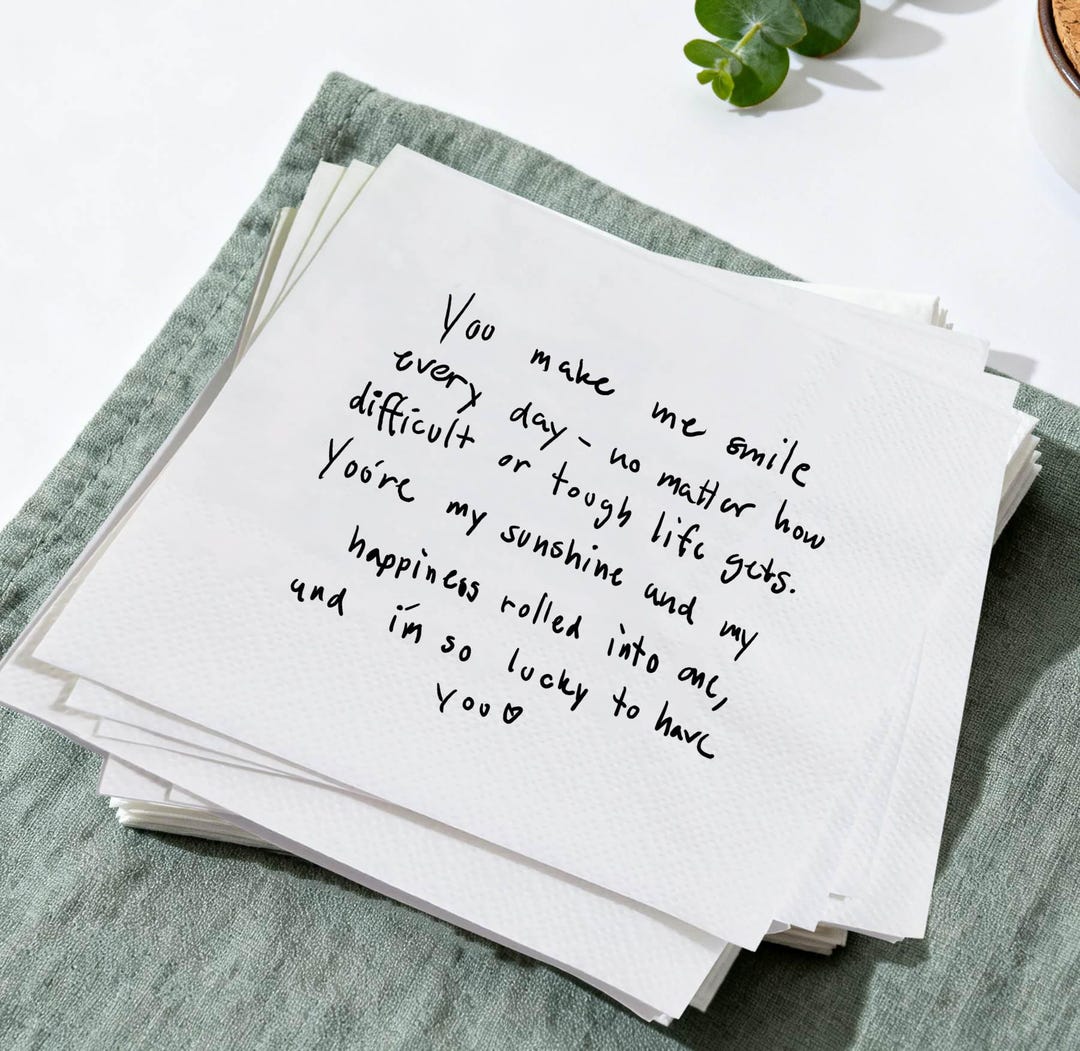 You make me smile
every day - no matter how
difficult or tough life gets.
You're my sunshine and my
happiness rolled into one,
and i'm so lucky to have
you♡